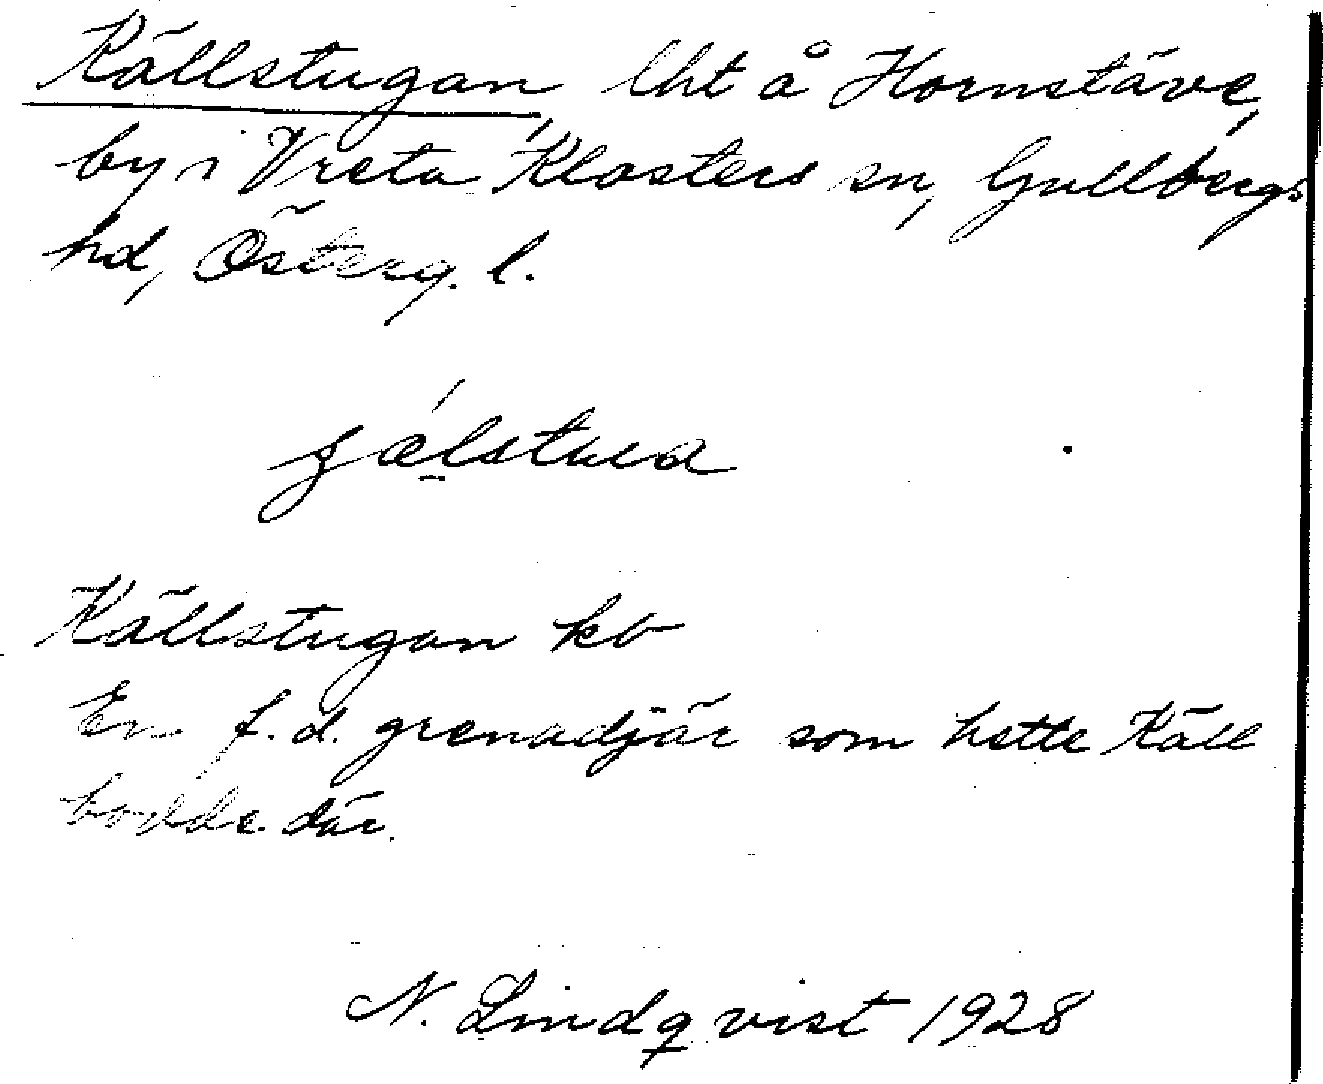 Källstugan, lht å Hornstäve,
by i Vreta Klosters sn, Gullbergs
hd, Österg. l.
Källstugan kb
En f.d. grenadjär som hette Käll
bodde där.
N. Lindqvist 1928